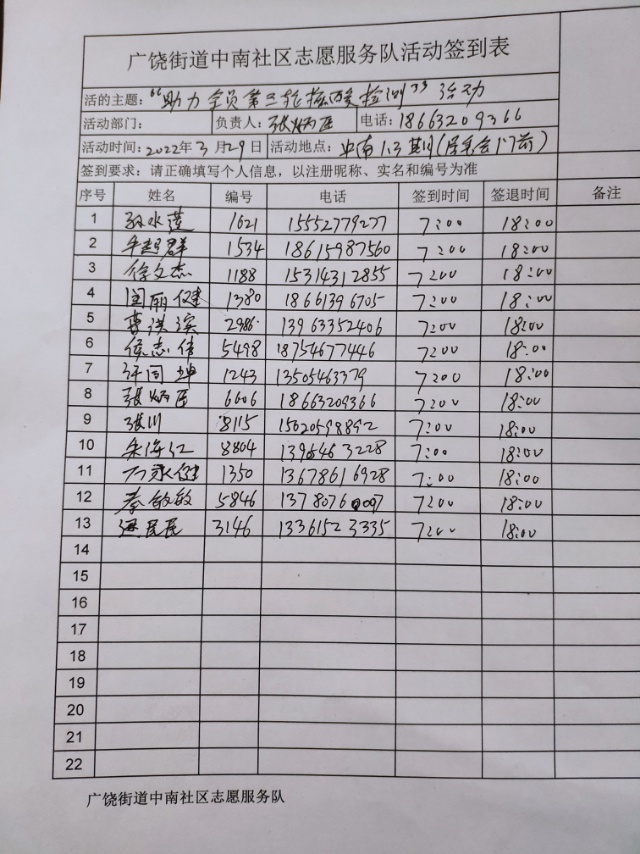 广饶街道中南社区志愿服务队活动签到表
活的主题：“助力全员第三轮核酸检测”活动
活动部门： 负责人：张炳臣 电话：18663209366
活动时间：2022年3月29日 活动地点：中南1.3期(居委会门前)
签到要求：请正确填写个人信息，以注册昵称、实名和编号为准
序号 姓名 编号 电话 签到时间 签退时间 备注
1 孙水莲 1621 15552779277 7:00 18:00
2 1534 18615987560 7:00 18:00
3 徐文杰 1188 15314312855 7:00 18:00
4 闫丽健 1380 18661396705 7:00 18:00
5 曹洪滨 2986 13963352406 7:00 18:00
6 侯志伟 5498 18754677446 7:00 18:00
7 许同坤 1243 13505463379 7:00 18:00
8 张炳臣 6606 18663209366 7:00 18:00
9 张川 8115 15020598892 7:00 18:00
10 8804 13954643228 7:00 18:00
11 1350 13678616928 7:00 18:00
12 秦敏敏 5846 7:00 18:00
13 3146 13361523335 7:00 18:00
14
15
16
17
18
19
20
21
22
广饶街道中南社区志愿服务队